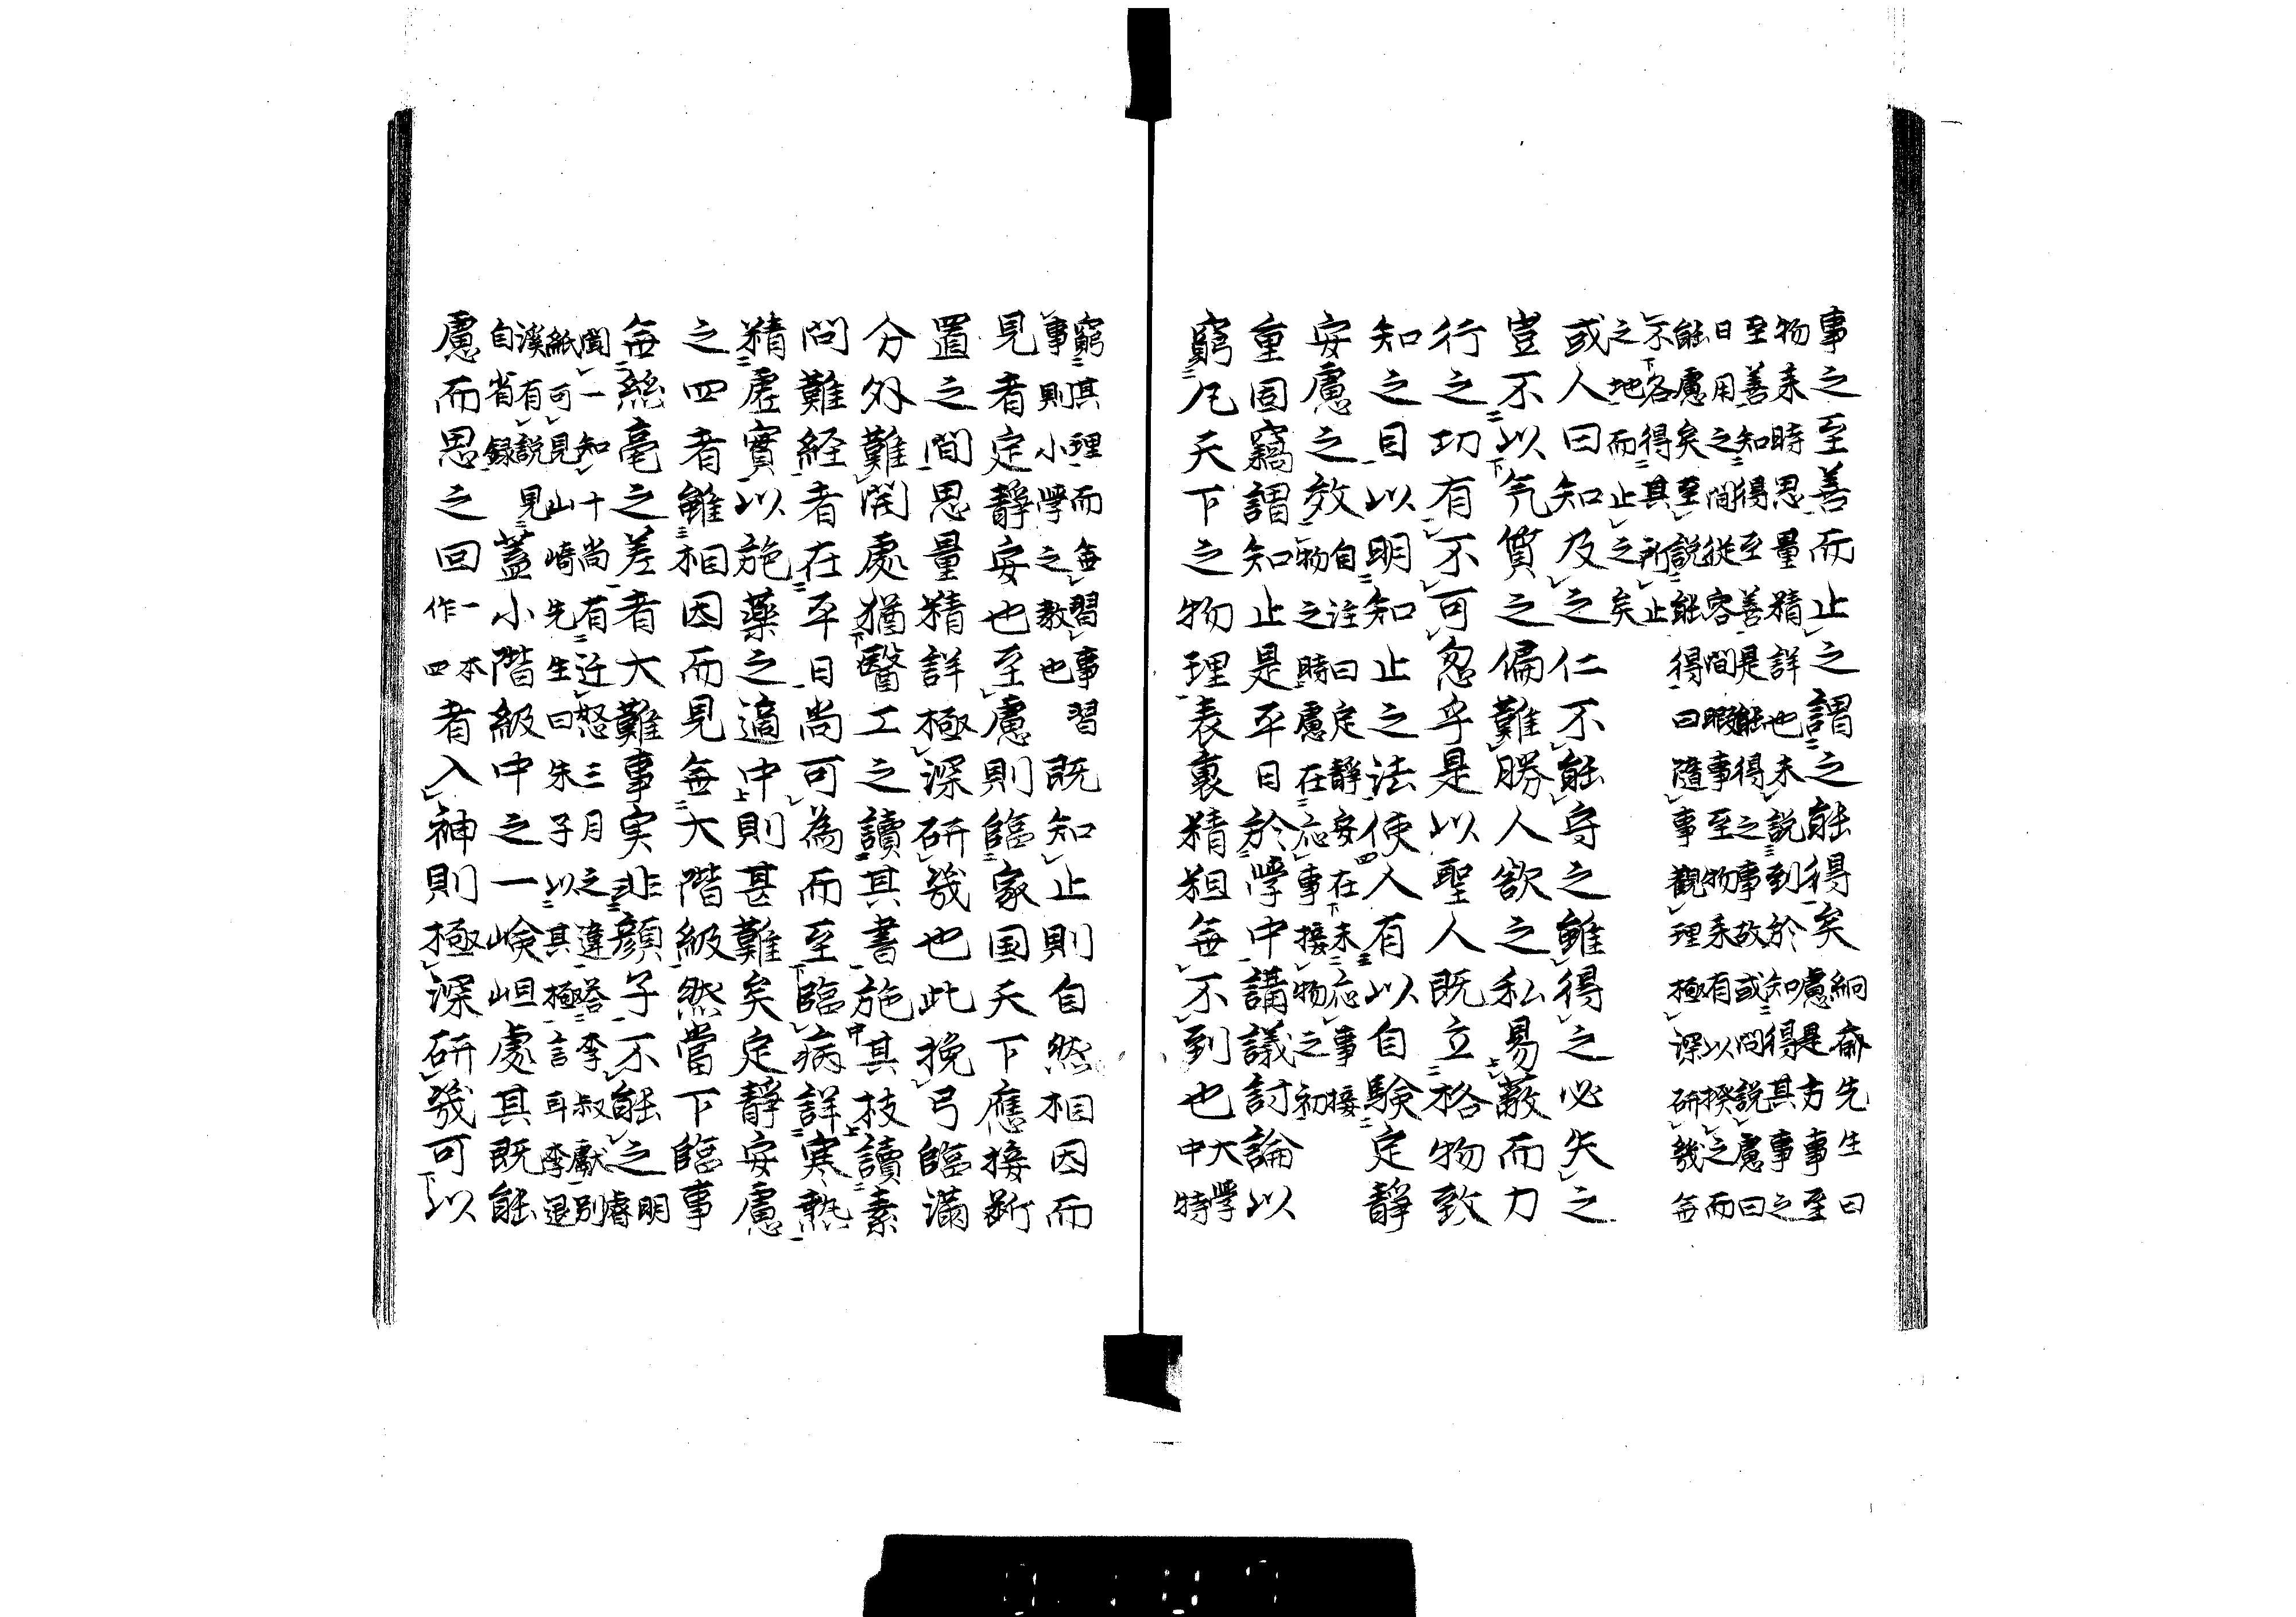 事之至善而止之謂之能得矣
絅斎先生曰
慮是方事至
物来時思量精詳也未説到於知得其事之
至善知得至善是能得之事故或問説慮曰
日用之間従容間暇事至物来有以揆之而
能慮矣至説能得曰隨事観理極深研幾無
不各得其所止
之地而止之矣
或人曰知及之仁不能守之雖得之必失之
豈不以気質之偏難勝人欲之私易蔽而力
行之功有不可忽乎是以聖人既立格物致
知之目以明知止之法使人有以自験定静
安慮之效
自注曰定静安在未応事接
物之時慮在応事接物之初
重固竊謂知止是平日於學中講議討論以
窮凡天下之物理表裏精粗無不到也
大學
中特
窮其理而無習事習
事則小學之教也
既知止則自然相因而
見者定静安也至慮則臨家国天下應接断
置之間思量精詳極深研幾也此挽弓臨満
分外難開處猶醫工之讀其書施其技讀素
問難経者在平日尚可為而至臨病詳寒熱
精虚實以施薬之適中則甚難矣定静安慮
之四者雖相因而見無大階級然當下臨事
無絲毫之差者大難事実非顔子不能之
明
睿
聞一知十尚有迁怒三月之違答李叔獻別
紙可見山崎先生曰朱子以其極言耳李退
溪有説見
自省録
蓋小階級中之一嶮岨處其既能
慮而思之回
一本
作四
者入神則極深研幾可以